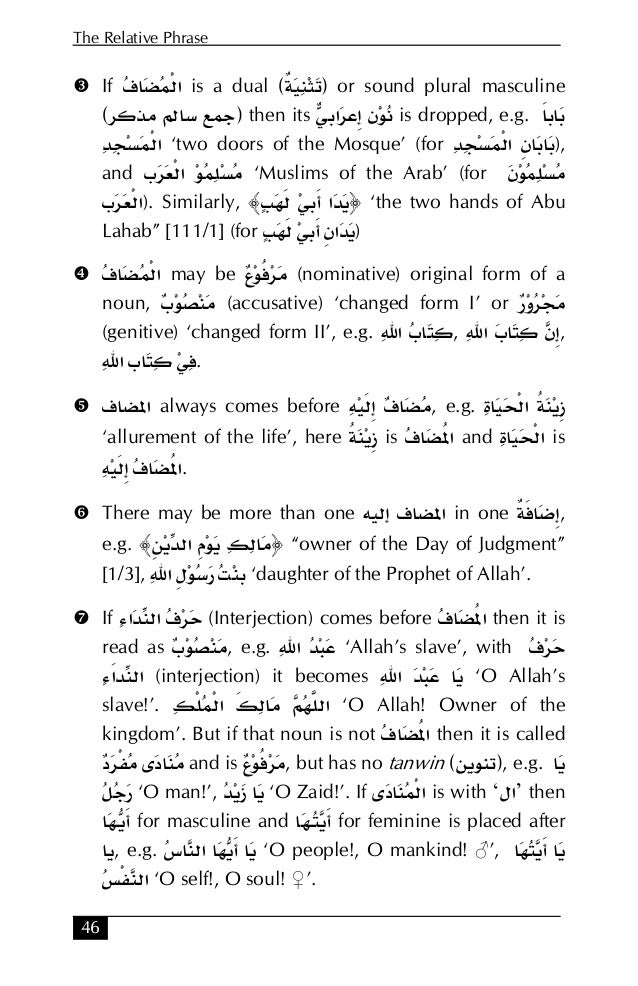 The Relative Phrase
❸ If الْمُضَافُ is a dual (تَثْنِيَةٌ) or sound plural masculine
(جمع سالم مذكر) then its نُوْن إِعرَابيٌّ is dropped, e.g. بَابَا
الْمَسْجِدِ ‘two doors of the Mosque’ (for بَابَانِ الْمَسْجِدِ),
and مُسْلِمُوْ الْعَرَب ‘Muslims of the Arab’ (for مُسْلِمُوْنَ
الْعَرَب). Similarly, ﴿يَدَا أَبيْ لَهَبٍ﴾ ‘the two hands of Abu
Lahab” [111/1] (for يَدَانِ أَبيْ لَهَبٍ)
❹ الْمُضَافُ may be مَرْفُوْعٌ (nominative) original form of a
noun, مَنْصُوْبٌ (accusative) ‘changed form I’ or مَجْرُوْرٌ
(genitive) ‘changed form II’, e.g. كِتَابُ اللهِ, إِنَّ كِتَابَ اللهِ,
فِيْ كِتَاب اللهِ.
❺ المضاف always comes before مُضَافٌ إِلَيْهِ, e.g. زِيْنَةُ الْحَيَاةِ
‘allurement of the life’, here زِيْنَةُ is الْمُضَافُ and الْحَيَاةِ is
الْمُضَافُ إِلَيْهِ.
❻ There may be more than one المضاف إليه in one إِضَافَةٌ,
e.g. ﴿مَالِكِ يَوْمِ الدِّيْنِ﴾ “owner of the Day of Judgment”
[1/3], بنْتُ رَسُوْلِ اللهِ ‘daughter of the Prophet of Allah’.
❼ If حَرْفُ النِّدَاءِ (Interjection) comes before الْمُضَافُ then it is
read as مَنْصُوْبٌ, e.g. عَبْدُ اللهِ ‘Allah’s slave’, with حَرْفُ
النِّدَاءِ (interjection) it becomes يَا عَبْدَ اللهِ ‘O Allah’s
slave!’. اللَّهُمَّ مَالِكَ الْمُلْكِ ‘O Allah! Owner of the
kingdom’. But if that noun is not الْمُضَافُ then it is called
مُنَادَى مُفْرَدٌ and is مَرْفُوْعٌ, but has no tanwin (تنوين), e.g. يَا
رَجُلُ ‘O man!’, يَا زَيْدُ ‘O Zaid!’. If الْمُنَادَى is with ‘ال’ then
أَيُّهَا for masculine and أَيَّتُهَا for feminine is placed after
يا, e.g. يَا أَيُّهَا النَّاسُ ‘O people!, O mankind! ♂’, يَا أَيَّتُهَا
النَّفْسُ ‘O self!, O soul! ♀’.
46